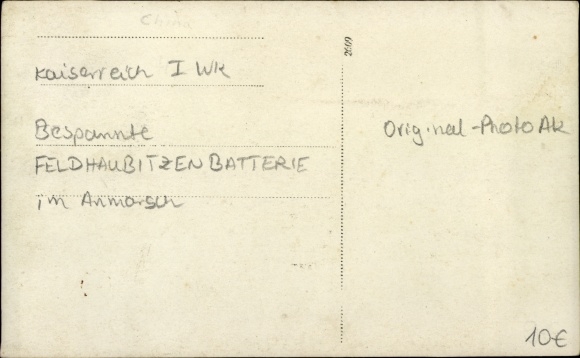 China
Kaiserreich I WK
Bespannte
FELDHAUBITZEN BATTERIE
im Anmarsch
2609
Original-Photo AK
10€